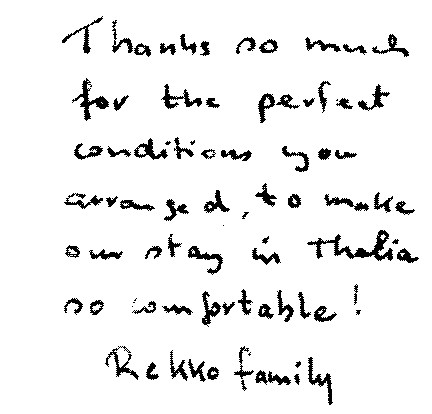 Thanks so much
for the perfect
conditions you
arranged, to make
our stay in Thalia
so comfortable!
Rekko family